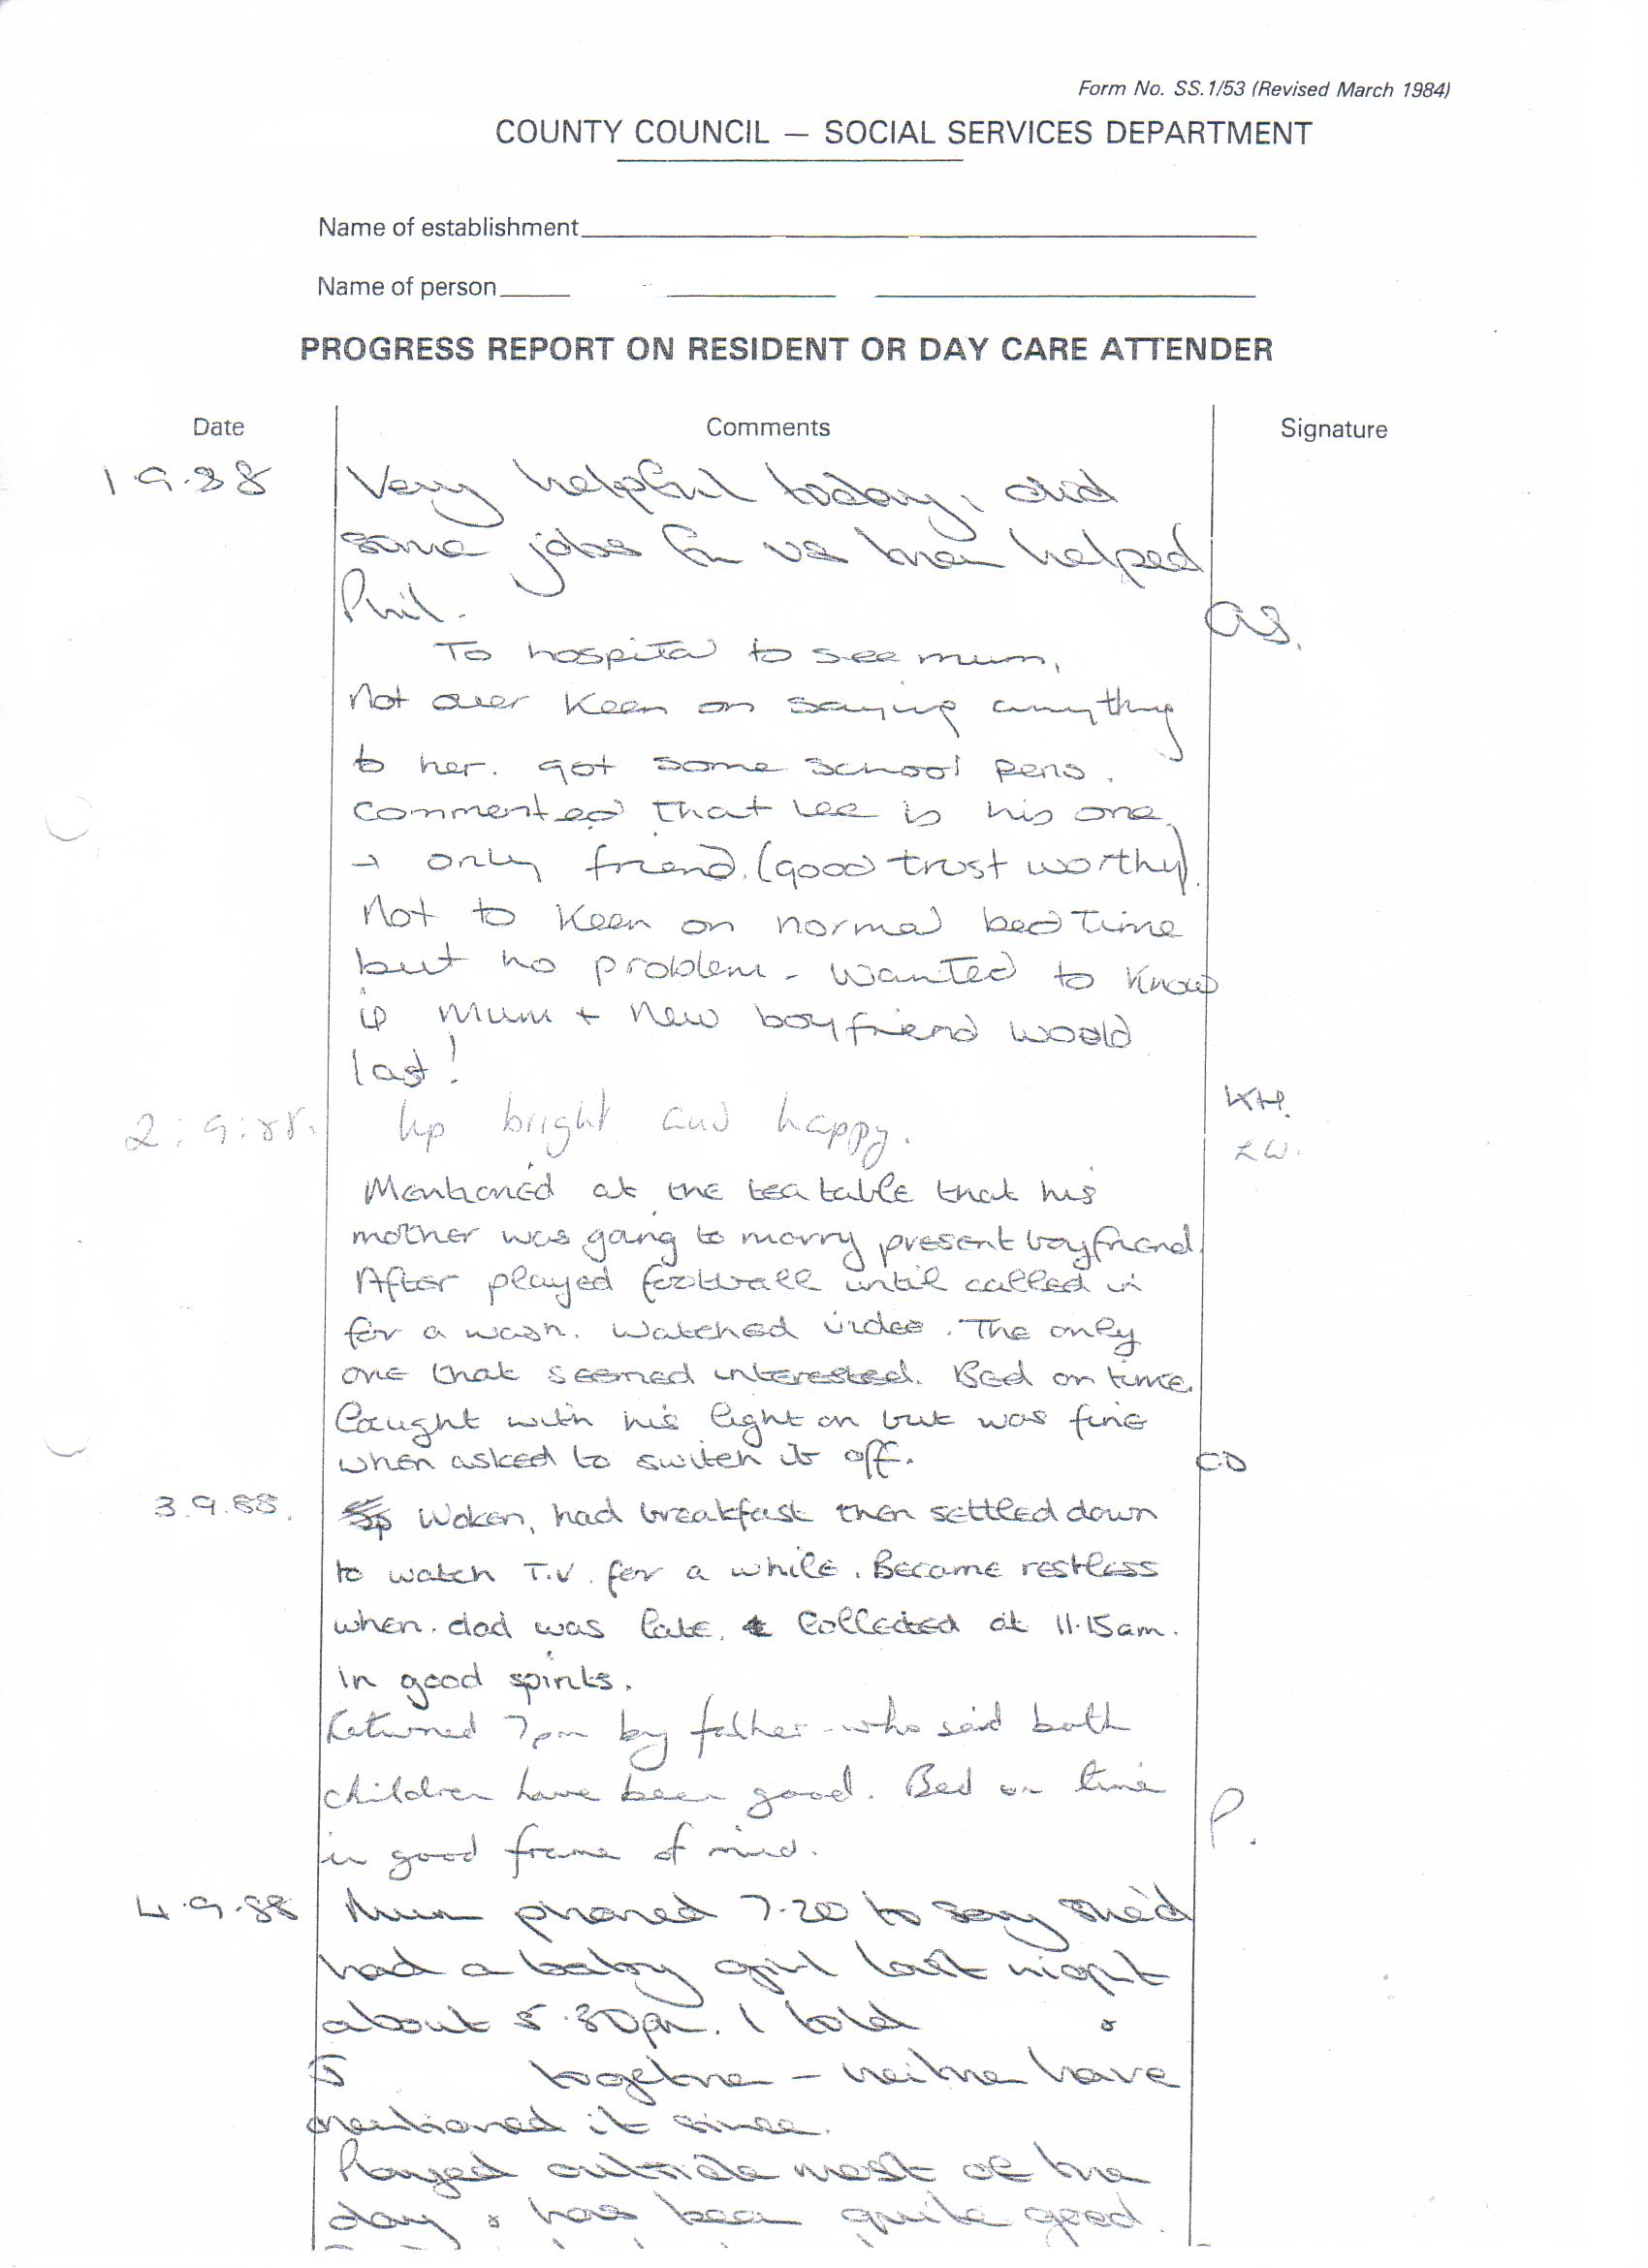 Form No. SS.1/53 (Revised March 1984)
COUNTY COUNCIL — SOCIAL SERVICES DEPARTMENT
Name of establishment
Name of person
PROGRESS REPORT ON RESIDENT OR DAY CARE ATTENDER
Date Comments Signature
1.9.88 Very helpful today, did
some jobs for us then helped
Phil. GS.
To hospital to see mum,
Not over keen on saying anything
to her. got some school pens.
commented that Lee is his one
+ only friend. (good trust worthy).
Not to keen on normal bed time
but no problem - wanted to know
if Mum + New boyfriend would
last! KH.
2:9:88. Up bright and happy. LW.
Mentioned at the tea table that his
mother was going to marry present boyfriend.
After played football until called in
for a wash. Watched video. The only
one that seemed interested. Bed on time.
Caught with his light on but was fine
when asked to switch it off. CD
3.9.88. Woken, had breakfast then settled down
to watch T.V. for a while. Became restless
when dad was late. Collected at 11.15am.
in good spirits.
Returned 7pm by father - who said both
children have been good. Bed on time
in good frame of mind. P.
4.9.88 Mum phoned 7.20 to say she'd
had a baby girl last night
about 5.30pm. I told &
together - neither have
mentioned it since.
Played outside most of the
day & has been quite good.